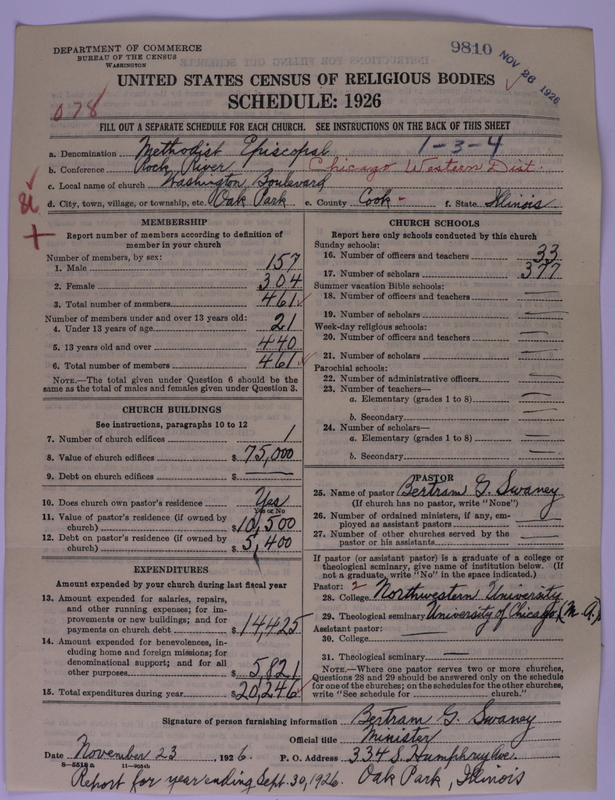 DEPARTMENT OF COMMERCE
BUREAU OF THE CENSUS
WASHINGTON
9810 NOV 26 1926
UNITED STATES CENSUS OF RELIGIOUS BODIES
SCHEDULE: 1926
078
FILL OUT A SEPARATE SCHEDULE FOR EACH CHURCH. SEE INSTRUCTIONS ON THE BACK OF THIS SHEET
a. Denomination Methodist Episcopal 1-3-4
b. Conference Rock River Chicago Western Dist.
c. Local name of church Washington Boulevard
d. City, town, village, or township, etc. Oak Park e. County Cook f. State Illinois
MEMBERSHIP
Report number of members according to definition of
member in your church
Number of members, by sex:
1. Male 157
2. Female 304
3. Total number of members 461
Number of members under and over 13 years old:
4. Under 13 years of age 21
5. 13 years old and over 440
6. Total number of members 461
NOTE.—The total given under Question 6 should be the
same as the total of males and females given under Question 3.
CHURCH BUILDINGS
See instructions, paragraphs 10 to 12
7. Number of church edifices 1
8. Value of church edifices $ 75,000
9. Debt on church edifices $ —
10. Does church own pastor's residence Yes
Yes or No
11. Value of pastor's residence (if owned by
church) $ 10,500
12. Debt on pastor's residence (if owned by
church) $ 5,400
EXPENDITURES
Amount expended by your church during last fiscal year
13. Amount expended for salaries, repairs,
and other running expenses; for im-
provements or new buildings; and for
payments on church debt $ 14,425
14. Amount expended for benevolences, in-
cluding home and foreign missions; for
denominational support; and for all
other purposes $ 5,821
15. Total expenditures during year $ 20,246
CHURCH SCHOOLS
Report here only schools conducted by this church
Sunday schools:
16. Number of officers and teachers 33
17. Number of scholars 377
Summer vacation Bible schools:
18. Number of officers and teachers —
19. Number of scholars —
Week-day religious schools:
20. Number of officers and teachers —
21. Number of scholars —
Parochial schools:
22. Number of administrative officers —
23. Number of teachers—
a. Elementary (grades 1 to 8) —
b. Secondary —
24. Number of scholars—
a. Elementary (grades 1 to 8) —
b. Secondary —
PASTOR
25. Name of pastor Bertram G. Swaney
(If church has no pastor, write "None")
26. Number of ordained ministers, if any, em-
ployed as assistant pastors —
27. Number of other churches served by the
pastor or his assistants —
If pastor (or assistant pastor) is a graduate of a college or
theological seminary, give name of institution below. (If
not a graduate, write "No" in the space indicated.)
Pastor: 2
28. College Northwestern University
29. Theological seminary University of Chicago (M.A.)
Assistant pastor:
30. College —
31. Theological seminary —
NOTE.—Where one pastor serves two or more churches,
Questions 28 and 29 should be answered only on the schedule
for one of the churches; on the schedules for the other churches,
write "See schedule for church."
Signature of person furnishing information Bertram G. Swaney
Official title Minister
Date November 23, 1926. P. O. Address 334 S. Humphrey Ave.
8—5518a
Report for year ending Sept. 30, 1926. Oak Park, Illinois